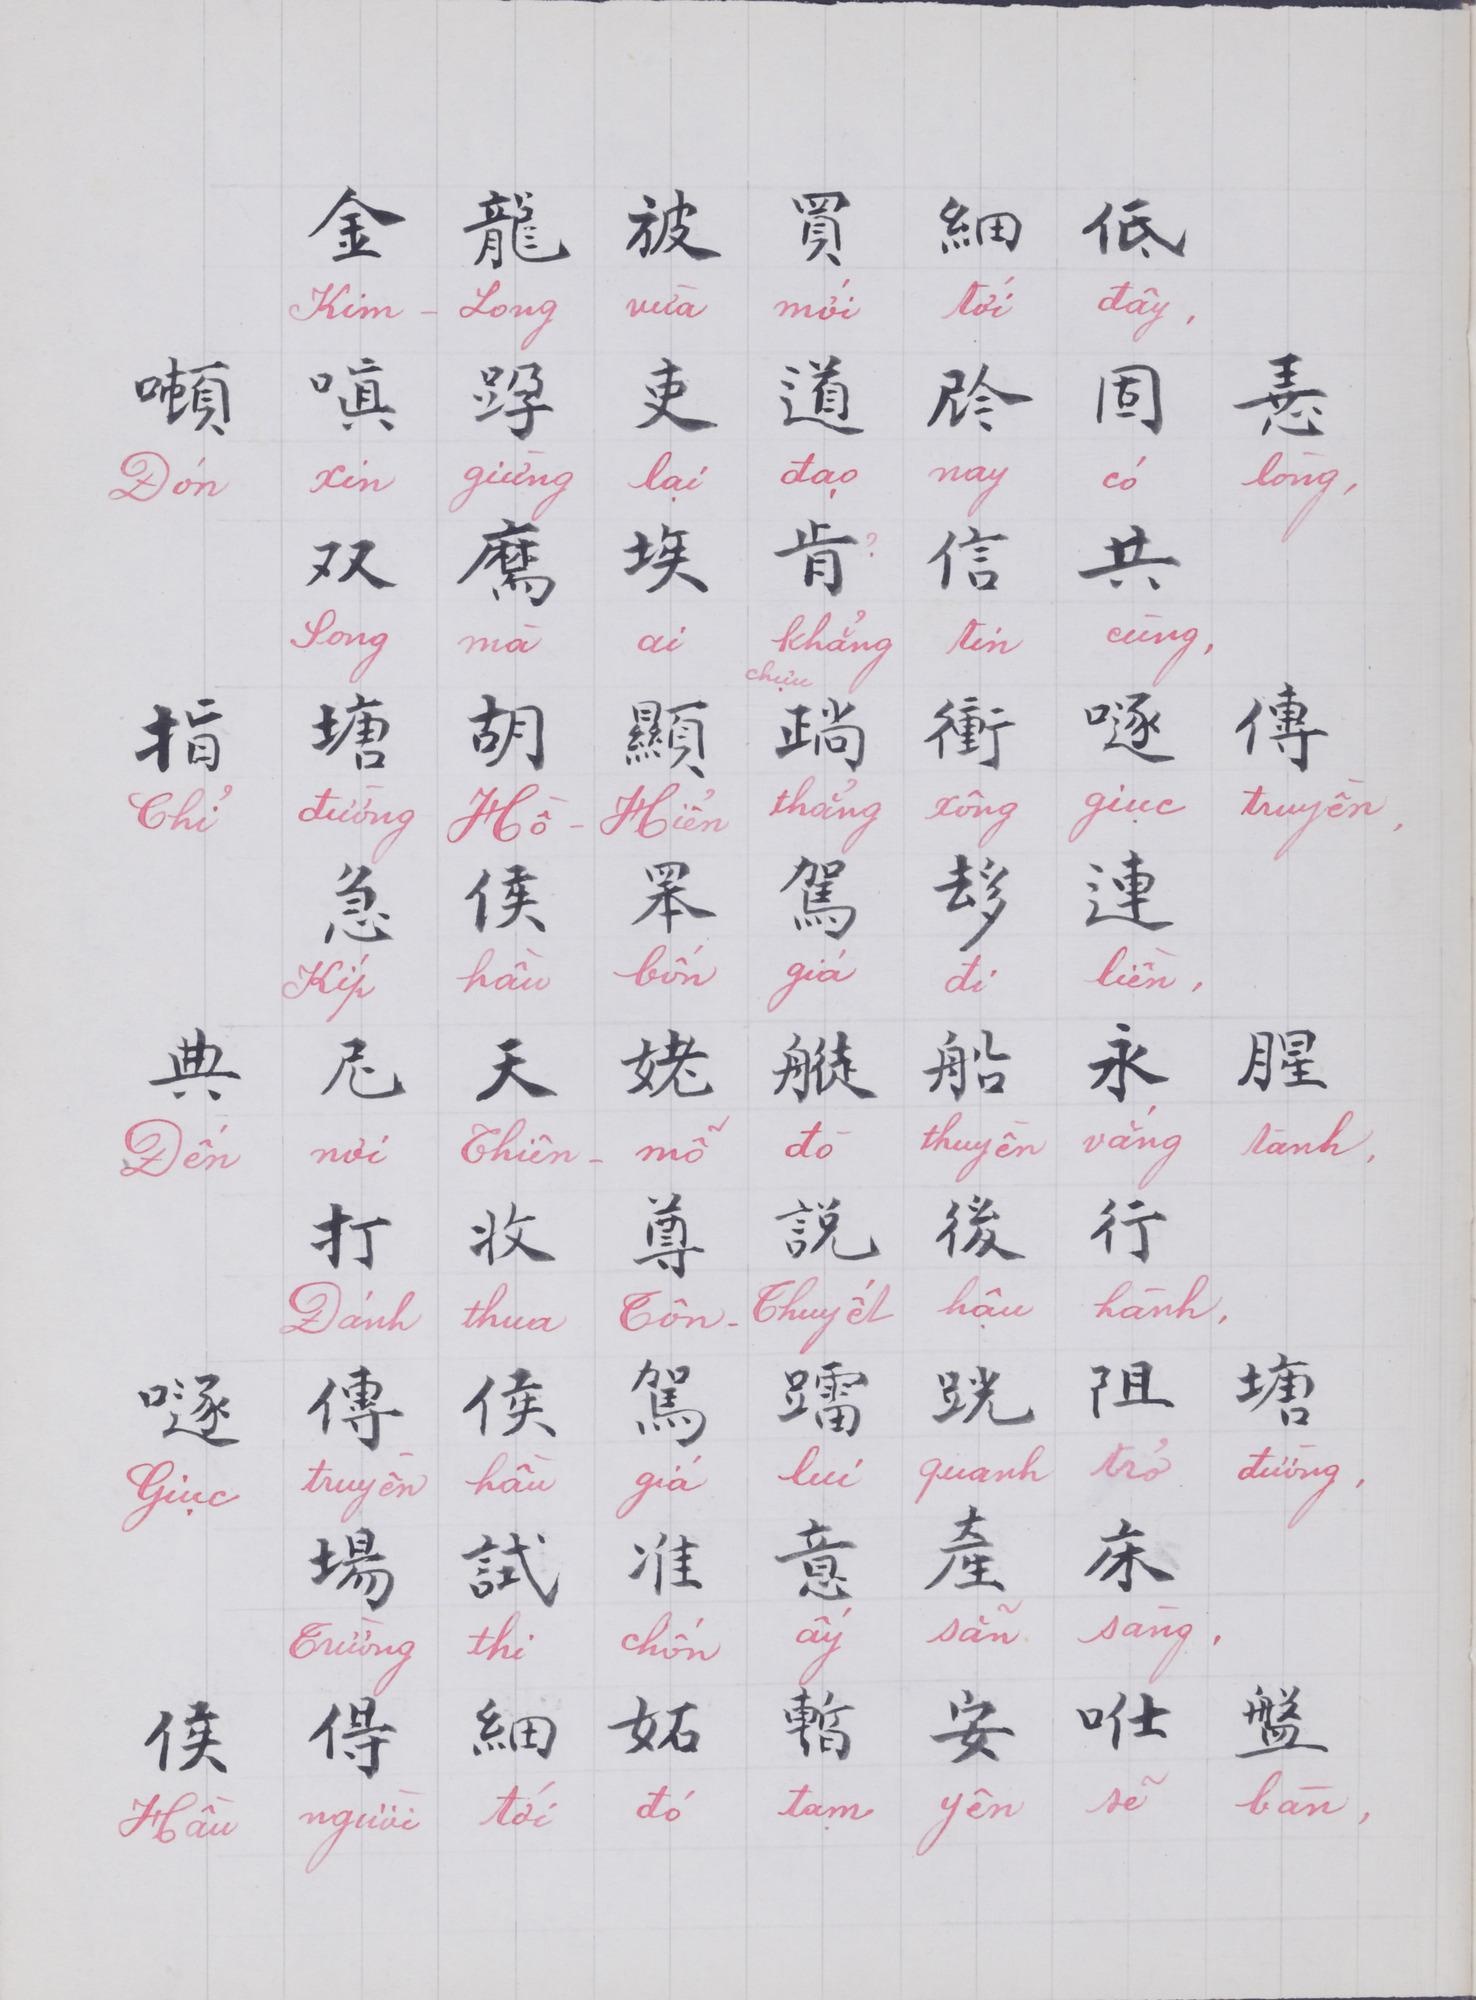 金 龍 被 買 細 低
Kim - Long vừa mới tới đây,
噸 嗔 踭 吏 道 固 𢚸
Đón xin giừng lại đạo nay có lòng,
双 𢚸 埃 肯 信 共
Song mà ai khẳng ? tin cùng,
chịu
指 塘 胡 顯 𨄼 衝 𠸂 傳
Chỉ đường Hồ - Hiển thẳng xông giục truyền,
急 侯 罘 駕 𠫾 連
Kíp hầu bốn giá đi liền,
典 尼 天 姥 艇 船 永 腥
Đến nơi Thiên - mỗ đò thuyền vắng tanh,
打 收 尊 説 後 行
Đánh thua Tôn - Thuyết hậu hành,
𠸂 傳 侯 駕 蹓 跣 阻 塘
Giục truyền hầu giá lui quanh trở đường,
場 試 准 意 產 床
Trường thi chốn ấy sẵn sàng,
侯 得 細 妬 暫 安 𠱋 盤
Hầu người tới đó tạm yên sẽ bàn,